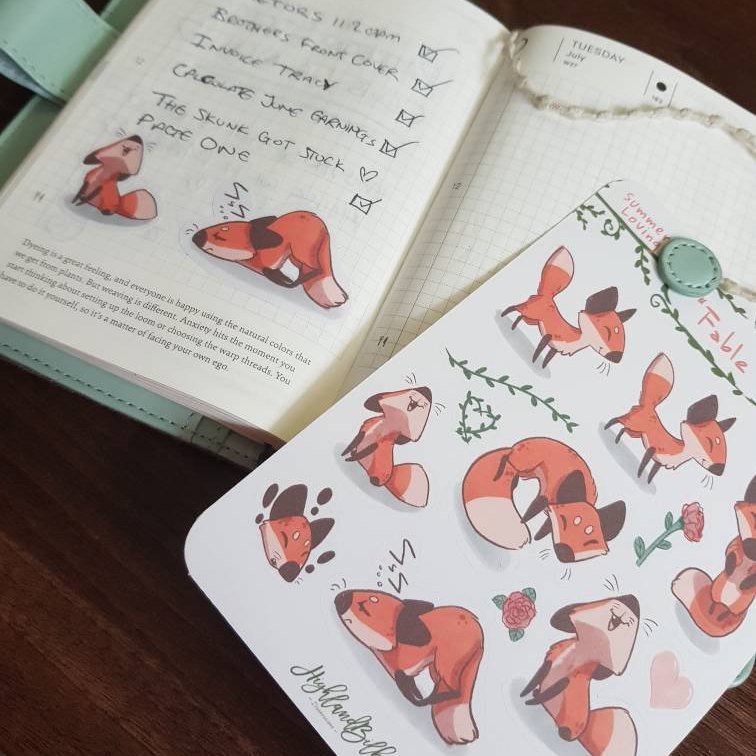 11:20am
BROTHERS FRONT COVER
INVOICE TRACY
CALCULATE JUNE EARNINGS
THE SKUNK GOT STUCK
PAGE ONE
12
11
Dyeing is a great feeling, and everyone is happy using the natural colors that
we get from plants. But weaving is different. Anxiety hits the moment you
start thinking about setting up the loom or choosing the warp threads. You
have to do it yourself, so it's a matter of facing your own ego.
TUESDAY
July
12
11
Summer
Loving
Fable